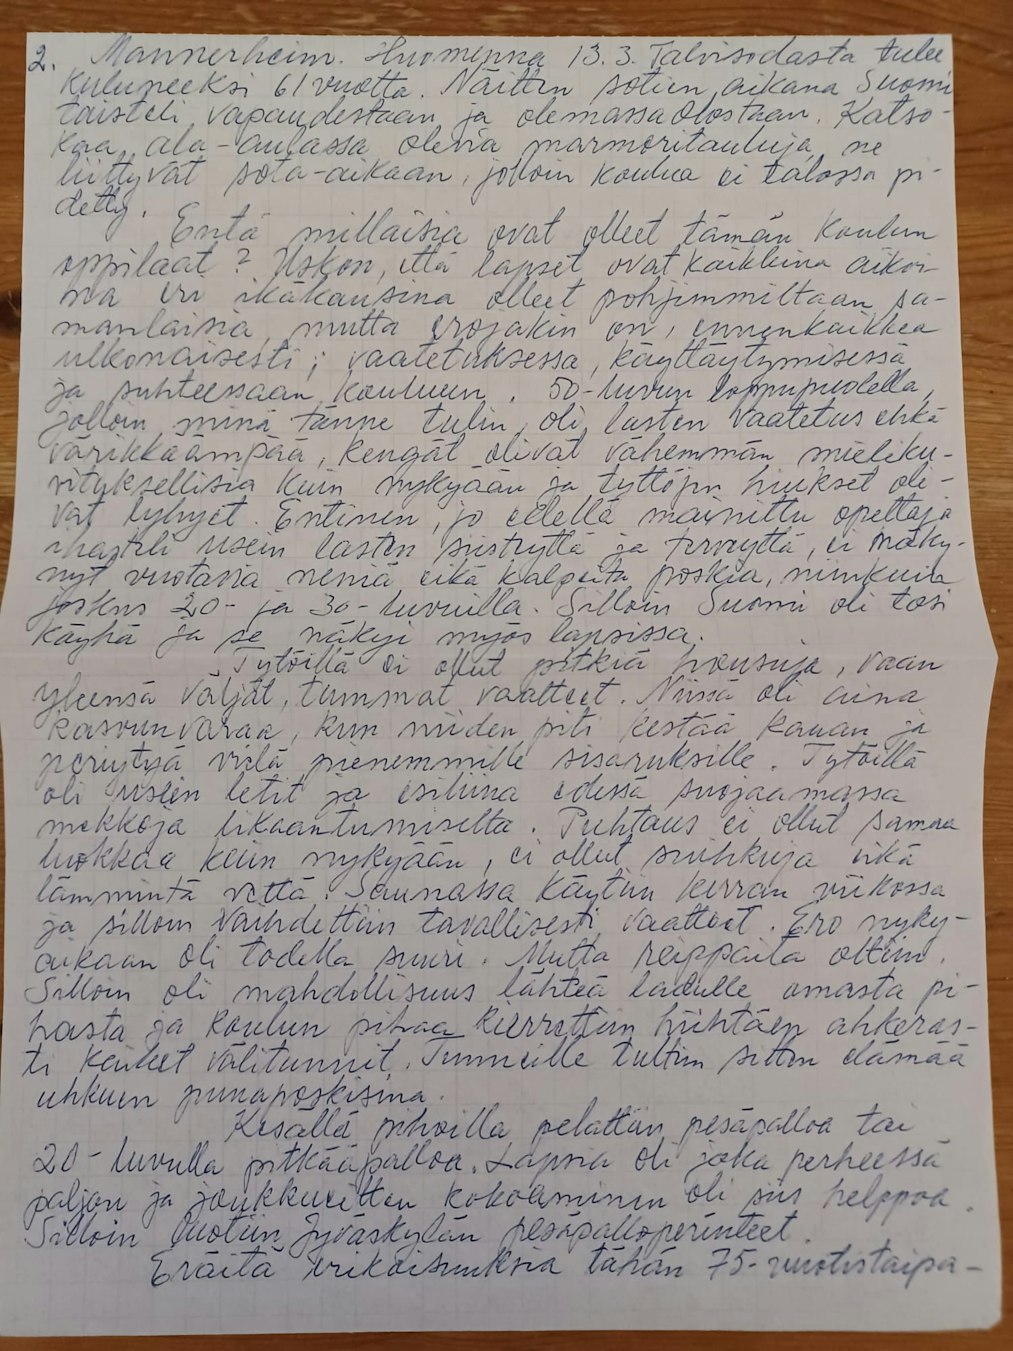 2. Mannerheim. Huomenna 13.3. Talvisodasta tulee
kuluneeksi 61 vuotta. Näitten sotien aikana Suomi
taisteli vapaudestaan ja olemassaolostaan. Katso-
kaa ala-aulassa olevia marmoritauluja, ne
liittyvät sota-aikaan, jolloin koulua ei talossa pi-
detty.
Entä millaisia ovat olleet tämän koulun
oppilaat? Uskon, että lapset ovat kaikkina aikoi-
na eri ikäkausina olleet pohjimmiltaan sa-
manlaisia, mutta erojakin on, ennenkaikkea
ulkonaisesti; vaatetuksessa, käyttäytymisessä
ja suhteessaan kouluun. 50-luvun loppupuolella,
jolloin minä tänne tulin, oli lasten vaatetus ehkä
värikkäämpää, kengät olivat vähemmän mieliku-
vituksellisia kuin nykyään ja tyttöjen hiukset oli-
vat lyhyet. Entinen, jo edellä mainittu opettaja
ihasteli usein lasten siisteyttä ja terveyttä, ei näky-
nyt vuotavia neniä eikä kalpeita poskia, niinkuin
joskus 20- ja 30-luvuilla. Silloin Suomi oli tosi
köyhä ja se näkyi myös lapsissa.
Tytöillä ei ollut pitkiä housuja, vaan
yleensä väljät, tummat vaatteet. Niissä oli aina
kasvunvaraa, kun niiden piti kestää kauan ja
periytyä vielä pienemmille sisaruksille. Tytöillä
oli usein letit ja esiliina edessä suojaamassa
mekkoja likaantumiselta. Puhtaus ei ollut samaa
luokkaa kuin nykyään, ei ollut suihkuja eikä
lämmintä vettä. Saunassa käytiin kerran viikossa
ja silloin vaihdettiin tavallisesti vaatteet. Ero nyky-
aikaan oli todella suuri. Mutta reippaita oltiin.
Silloin oli mahdollisuus lähteä ladulle omasta pi-
hasta ja koulun pihaa kierrettiin hiihtäen ahkeras-
ti kaikki välitunnit. Tunneille tultiin sitten elämää
uhkuen punaposkisina.
Kesällä pihoilla pelattiin pesäpalloa tai
20-luvulla pitkääpalloa. Lapsia oli joka perheessä
paljon ja joukkueitten kokoaminen oli siis helppoa.
Silloin luotiin Jyväskylän pesäpalloperinteet.
Eräitä erikoisuuksia tähän 75-vuotistaipa-